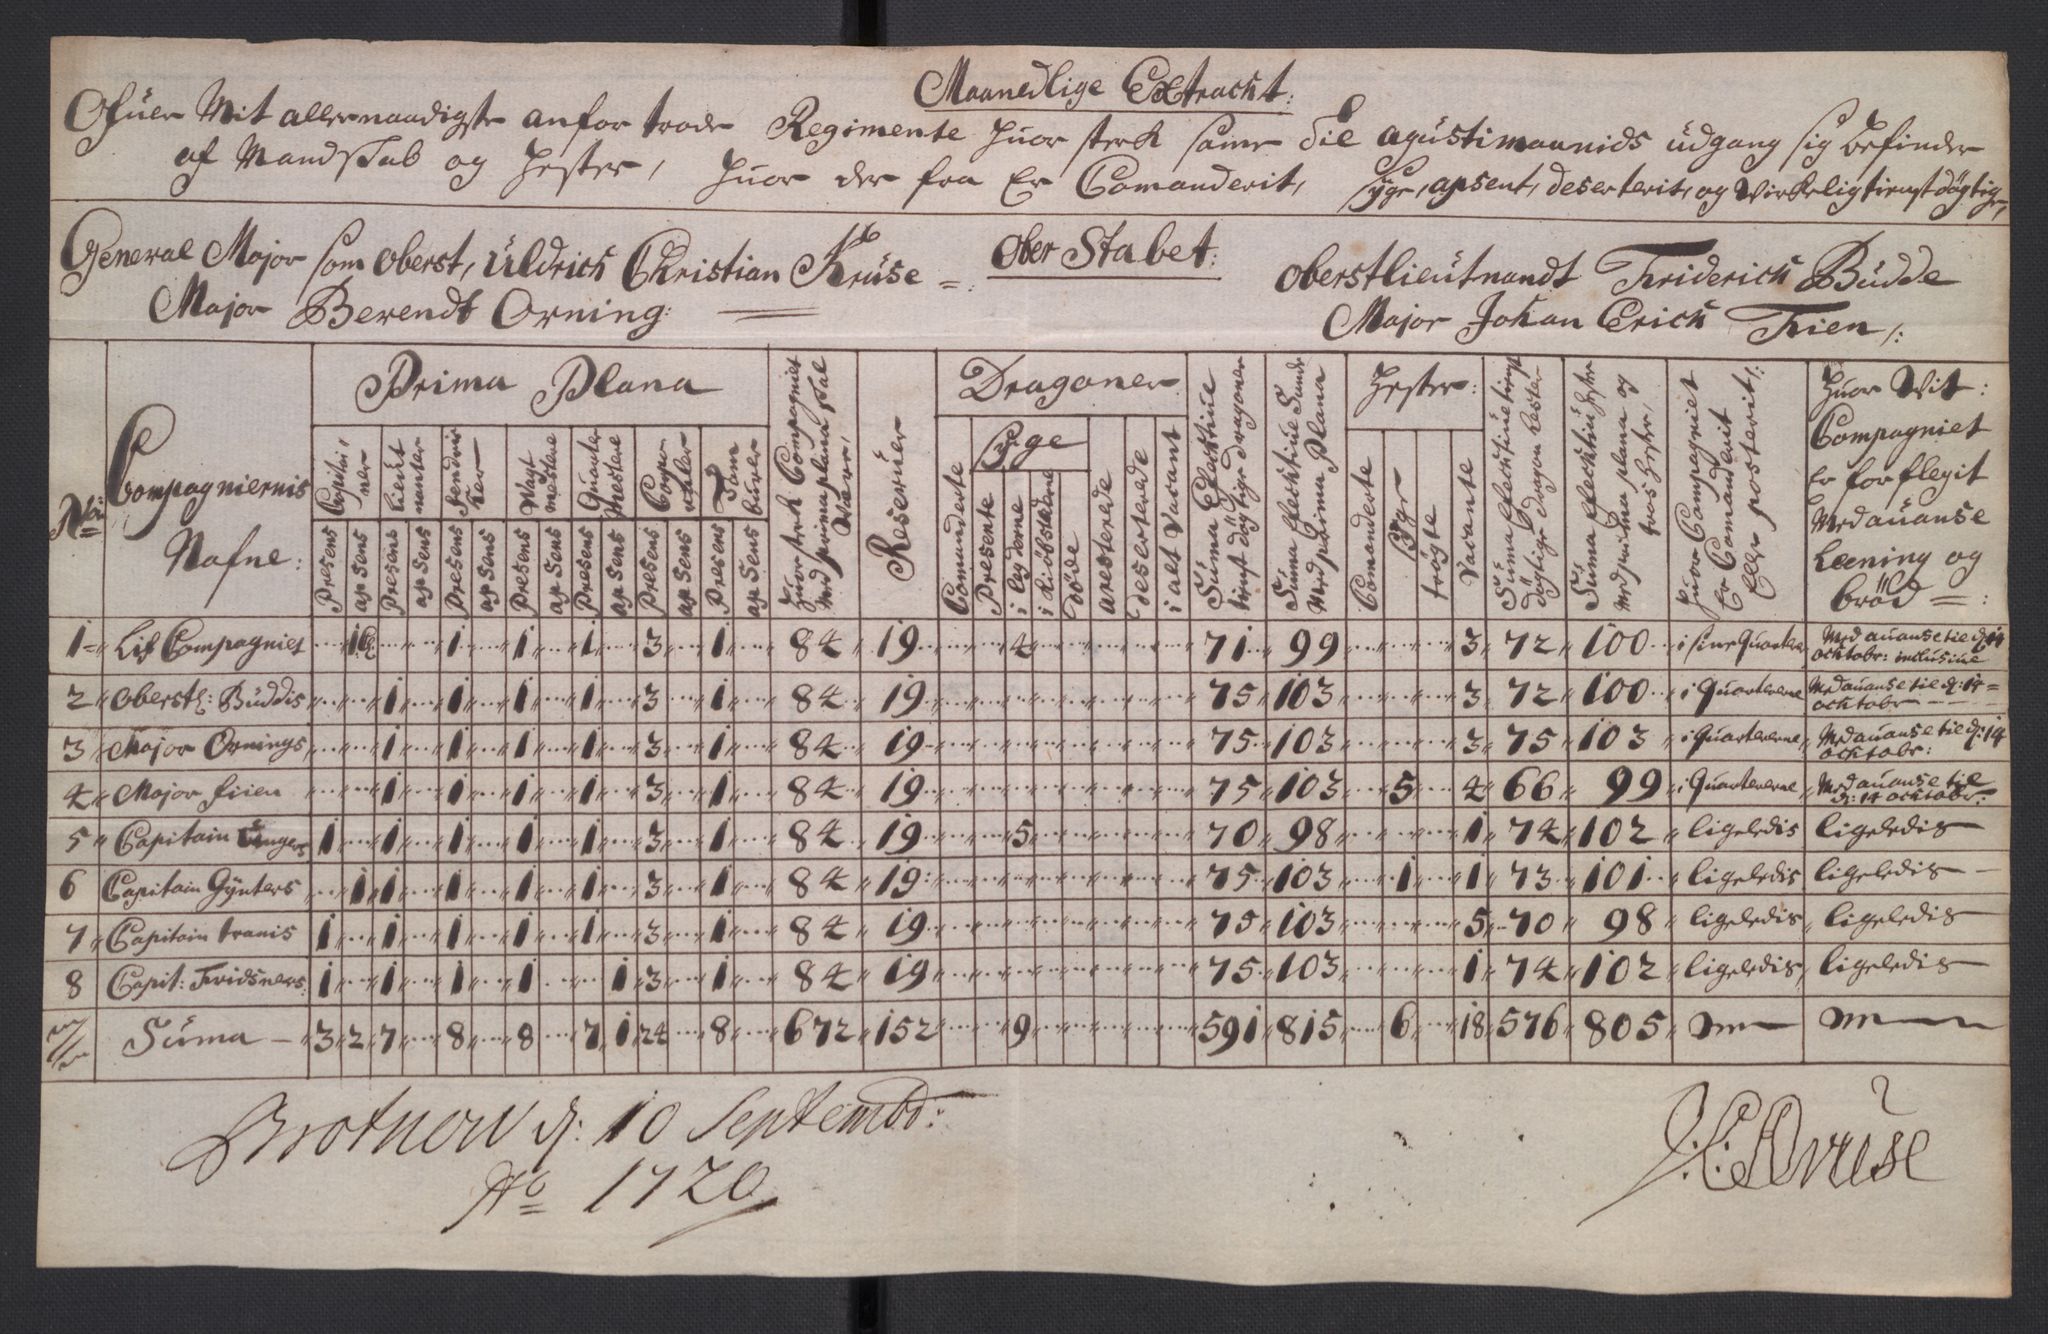 Maanedlige Extracht:
Ofuer Mit allernaadigste anfortrode Regimente huor sterk same til agusti maanids üdgang sig befinder
af Mandskab og hester, huor der fra Er Comanderit, syge, apsent, deserterit, og Virkelig tienstdögtige,
General Major som oberst, Üldrich Christian Krüse =:
Ober Stabet:
Oberstlieütnandt Friderich Büdde
Major Berendt Orning:
Major Johan Erich Frien /:
No:
Compagniernis Nafne:
Prima Plana
Capitai,ner
Lieütnanter
Fendricker
Wagtmestere
Quarter Mestere
Corporaler
Tambuurer
Presens apsens Presens apsens Presens apsens Presens apsens Presens apsens Presens apsens Presens apsens
Huor sterk Compagniet Med prima plana skal Være,
Reseruer
Dragoner
Comanderte
Syge
Presente
i Legderne
i kiöbstederne
döde
aresterede
deserterede
i alt Vacant
Süma Efecktiue tienst dögtige dragoner
Süma Efecktiue Sunde Med prima Plana
Hester:
Comanderte
Syge
trögte
Vacante
Süma Efecktiue tienst dögtige dragon hester
Süma Efecktiu hester med prima plana og tros hester,
Huor Compagniet Er Comanderit Eller posterit /:
Huor Vit: Compagniet Er forflegit Med auanse Leening og bröd =:
1 Lif Compagniet 1 1 1 1 3 1 84 19 4 71 99 3 72 100 i sine Quarterer Med auanse til d: 14 ocktobr: inclusiue
2 Oberstl: Büddis 1 1 1 1 3 1 84 19 75 103 3 72 100 i Quartererne Med auanse til d: 14 ocktobr
3 Major Ornings 1 1 1 1 3 1 84 19 75 103 3 75 103 i Quartererne Med auanse til d: 14 ocktobr:
4 Major friien 1 1 1 1 3 1 84 19 75 103 5 4 66 99 i Quartererne Med auanse til d: 14 ocktobr:
5 Capitain Üngers 1 1 1 1 1 3 1 84 19 5 70 98 1 74 102 ligeledis ligeledis
6 Capitain Gÿnters 1 1 1 1 1 3 1 84 19 75 103 1 1 73 101 ligeledis ligeledis
7 Capitain tranis 1 1 1 1 1 3 1 84 19 75 103 5 70 98 ligeledis ligeledis
8 Capit: Fridsners: 1 1 1 1 1 3 1 84 19 75 103 1 74 102 ligeledis ligeledis
Süma 3 2 7 8 8 7 1 24 8 672 152 9 591 815 6 18 576 805
Brotnow d: 10 Septembr:
Ao 1720
U:C:Kruse